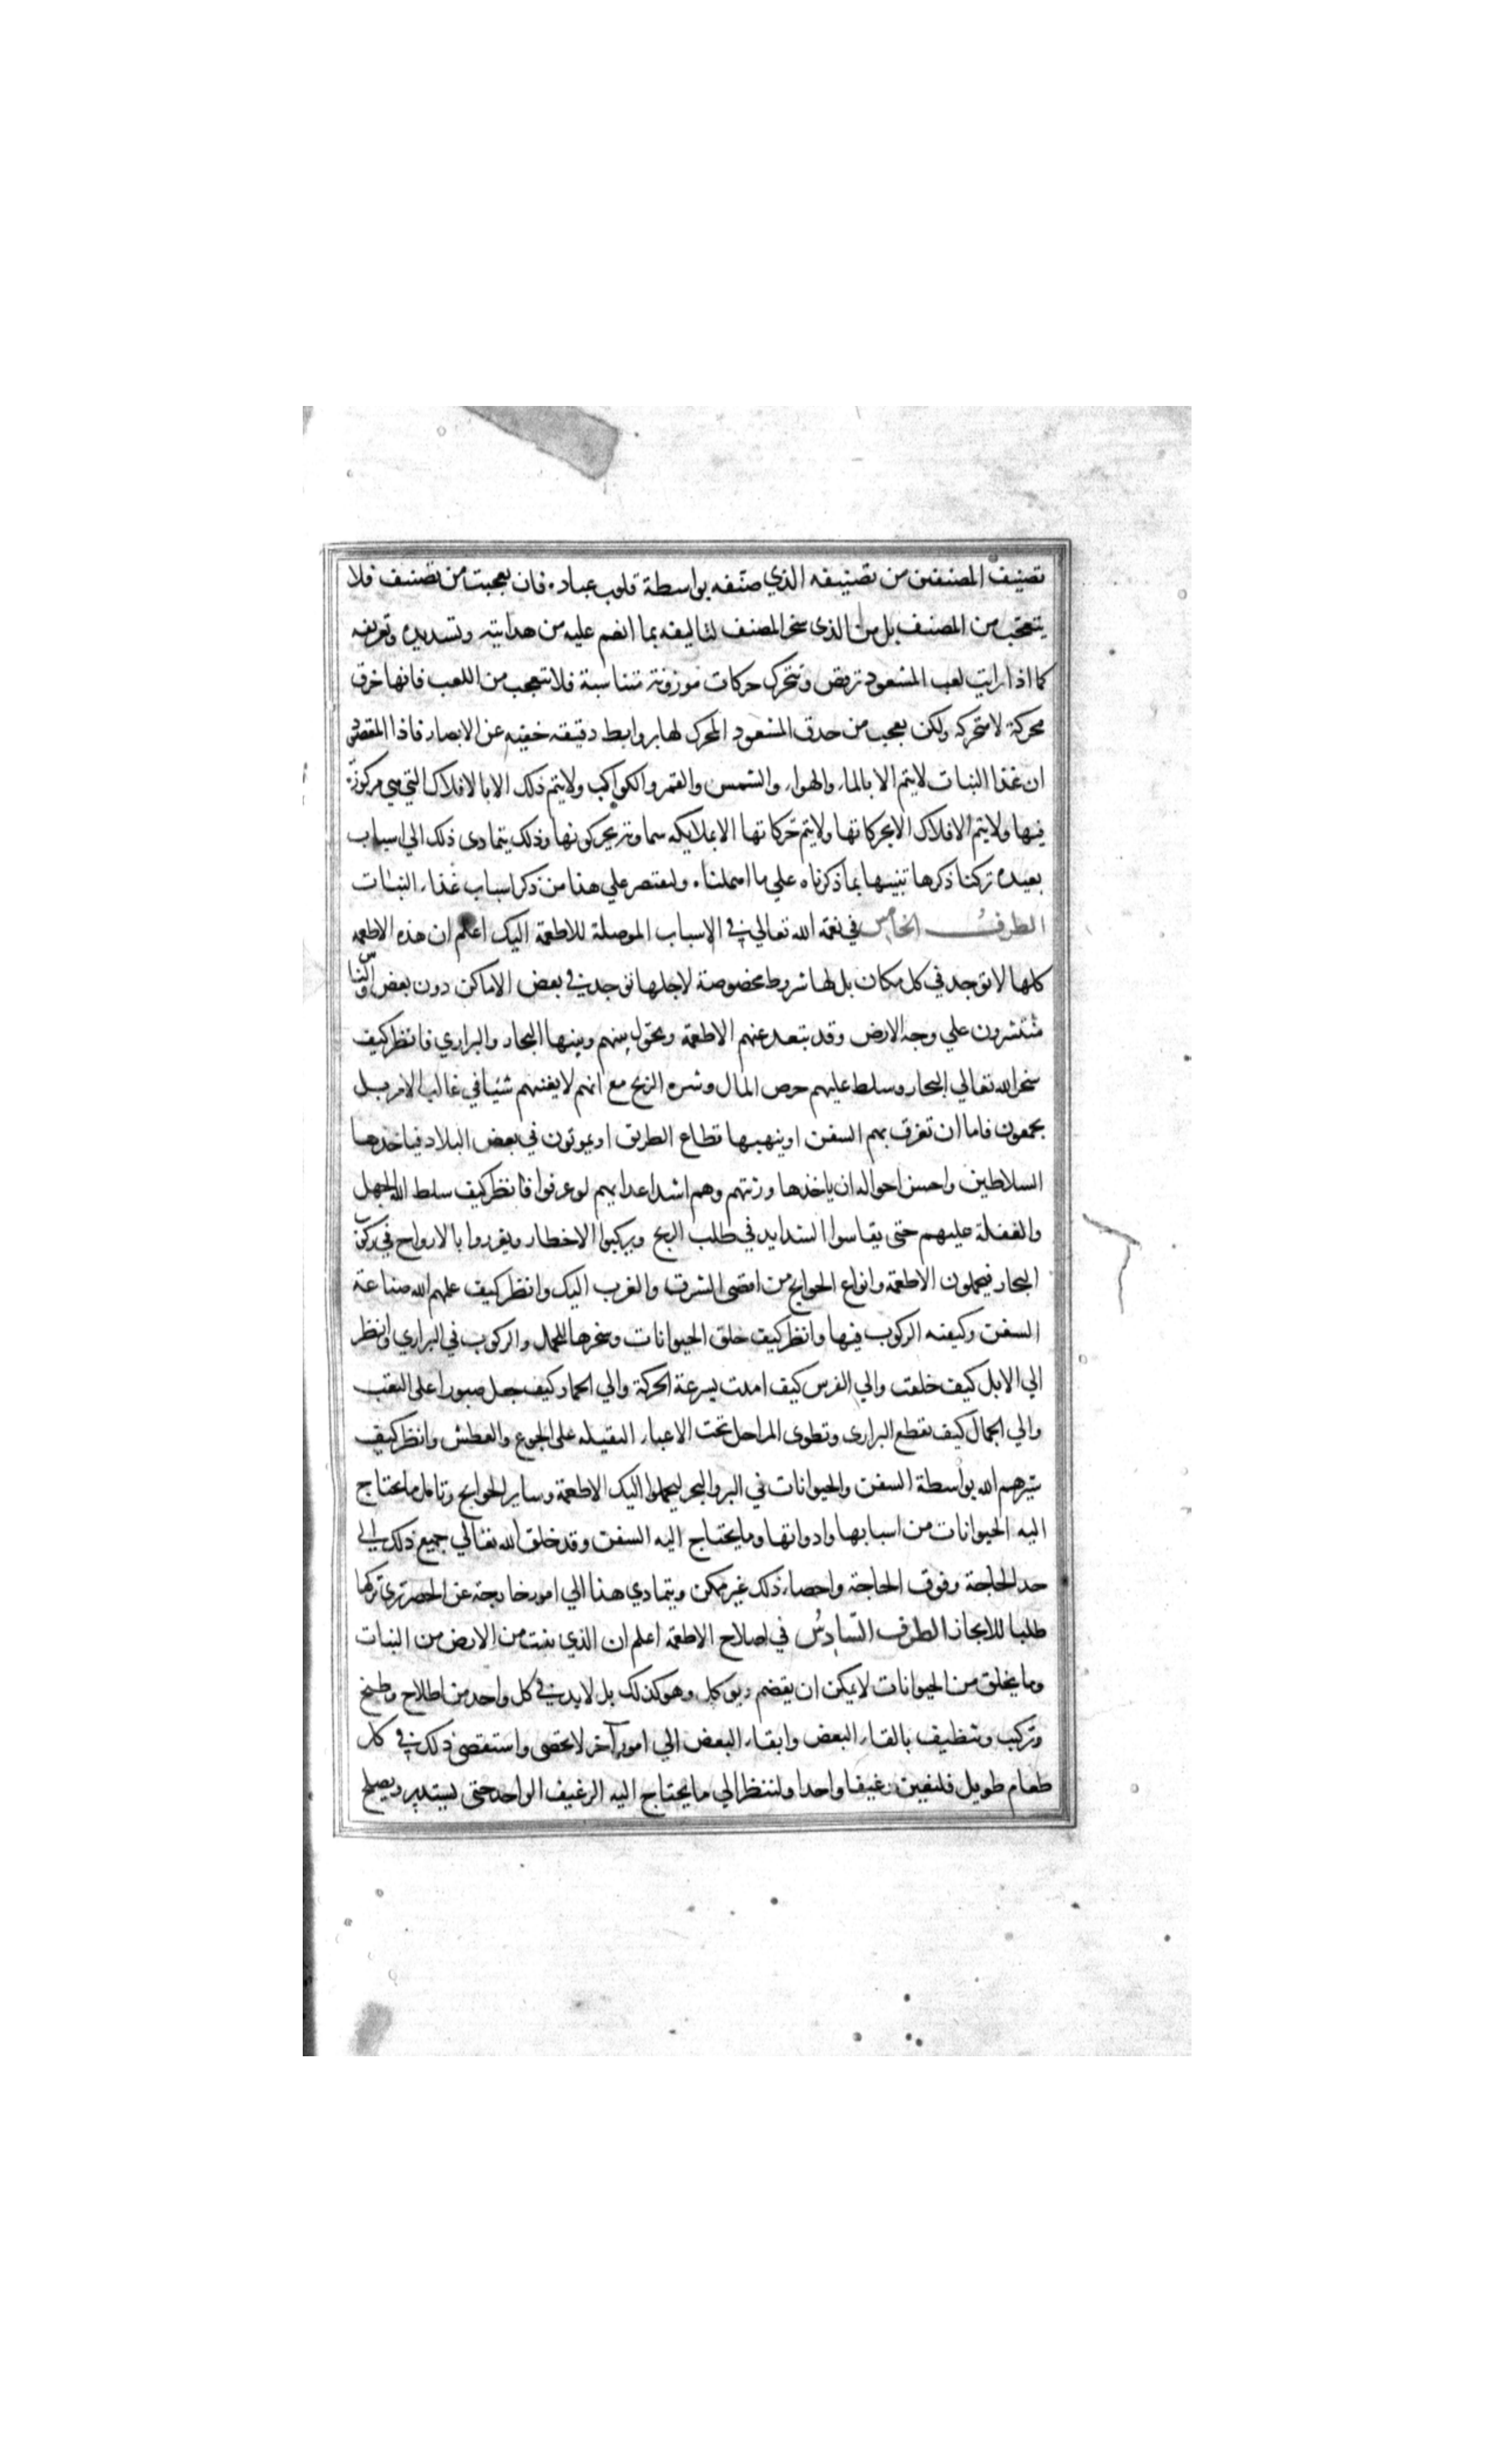 تصنيف المصنفين من تصنيفه الذي صنفه بواسطة قلوب عباده فان تعجبت من تصنيف فلا
يتعجب من المصنف بل من الذى سخر المصنف لتاليفه بما انعم عليه من هدايته وتسديده وتعريفه
كما اذا رايت لعب المشعود ترقص وتتحرك حركات موزونة متناسبة فلا تتعجب من اللعب فانها خرق
محركة لا متحركة ولكن تعجب من حذق المشعود المحرك لها بروابط دقيقه خفيه عن الابصار فاذا المقصود
ان غذا النبات لا يتم الا بالماء والهواء والشمس والقمر والكواكب ولا يتم ذلك الا بالافلاك التي هي مركوزة
فيها ولا يتم الافلاك الا بحركاتها ولا يتم حركاتها الا بملايكه سماوية يحركونها وذلك يتمادى ذلك الي اسباب
بعيده تركنا ذكرها تنبيها بما ذكرناه علي ما اهملنا ولنقتصر علي هذا من ذكر اسباب غذاء النبات
الطرف الخامس في نعمة الله تعالي في الاسباب الموصلة للاطعمة اليك اعلم ان هذه الاطعمه
كلها لا توجد في كل مكان بل لها شروط مخصوصة لاجلها توجد في بعض الاماكن دون بعض والناس
منتشرون علي وجه الارض وقد تبعد عنهم الاطعمة ويحول بينهم وبينها البحار والبراري فانظر كيف
سخر الله تعالي البحار وسلط عليهم حرص المال وشره الربح مع انهم لا يغنيهم شيا في غالب الامر بل
يجمعون فاما ان تغرق بهم السفن او ينهبها قطاع الطريق او يموتون في بعض البلاد فياخذها
السلاطين واحسن احواله ان ياخذها ورثتهم وهم اشد اعدايهم لو عرفوا فانظر كيف سلط الله الجهل
والغفلة عليهم حتى يقاسوا الشدايد في طلب الربح ويركبوا الاخطار ويغرروا بالارواح في ركوب
البحار فيحملون الاطعمة وانواع الحوايج من اقصى الشرق والغرب اليك وانظر كيف علمهم الله صناعة
السفن وكيفيه الركوب فيها وانظر كيف خلق الحيوانات وسخرها للحمل والركوب في البراري وانظر
الي الابل كيف خلقت والي الفرس كيف امدت بسرعة الحركة والي الحمار كيف جعل صبورا على التعب
والي الجمال كيف تقطع البرارى وتطوى المراحل تحت الاعباء الثقيله على الجوع والعطش وانظر كيف
سيرهم الله بواسطة السفن والحيوانات في البر والبحر ليحملوا اليك الاطعمة وساير الحوايج وتامل ما يحتاج
اليه الحيوانات من اسبابها وادواتها وما يحتاج اليه السفن وقد خلق الله تعالي جميع ذلك الي
حد الحاجة وفوق الحاجة واحصاء ذلك غير ممكن ويتمادي هذا الي امور خارجة عن الحصر نرى تركها
طلبا للايجاز الطرف السادس في اصلاح الاطعمة اعلم ان الذي ينبت من الارض من النبات
وما يخلق من الحيوانات لا يمكن ان يقضم ويوكل وهو كذلك بل لا بد في كل واحد من اطلاح وطبخ
وتركيب وتنظيف بالقاء البعض وابقاء البعض الي امور آخر لا تحصى واستقصى ذلك في كل
طعام طويل فلنعين رغيفا واحدا ولننظر الي ما يحتاج اليه الرغيف الواحد حتى يستدير ويصلح